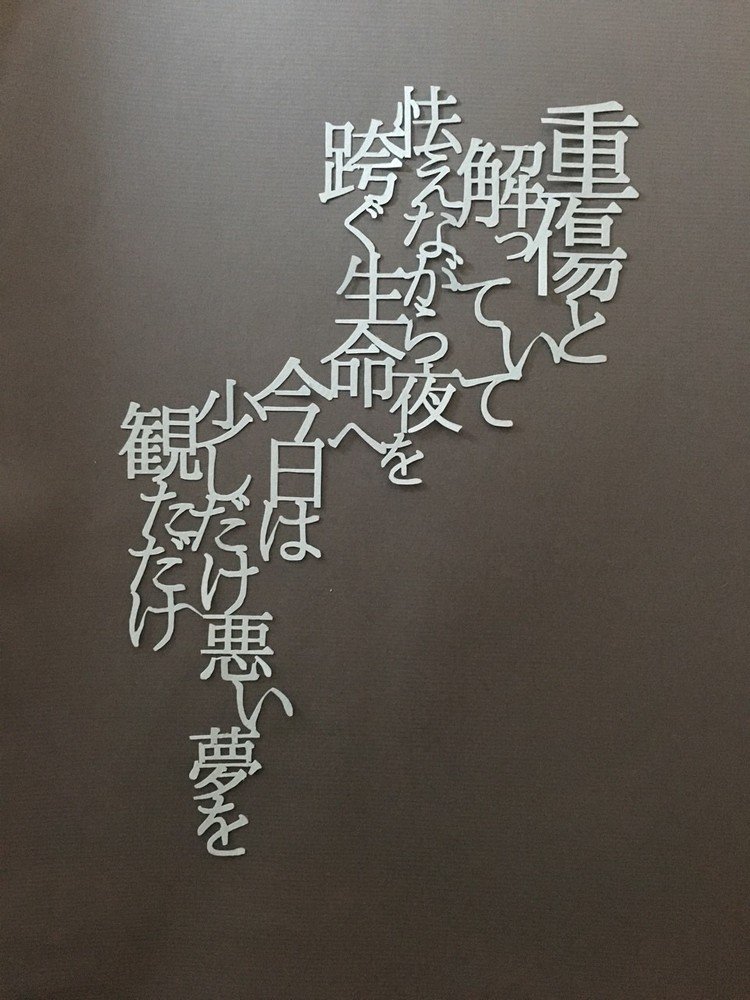 重傷と
解っていて
怯えながら夜を
跨ぐ生命へ
今日は
少しだけ悪い夢を
観ただけ